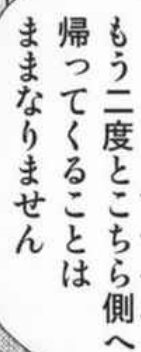 もう二度とこちら側へ
帰ってくることは
ままなりません